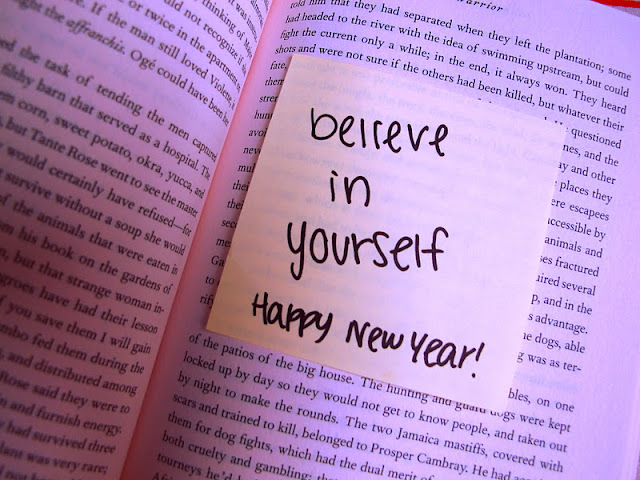 thinking of M
did not recognize if
or twice in the apartment,
ure. If the man still loved Violette,
the affranchis. Ogé could have been
ed the task of tending the men captured
filthy barn that served as a hospital. The
corn, sweet potato, okra, yucca, and
but Tante Rose went to see the master
would certainly have refused—for
survive without a soup she would
of the animals that were eaten in
m his book on the gardens of
n, but that strange woman in-
groes have had their lesson
f you save them I will gain
mbo fed them during the
, and distributed among
Rose said they were to
n and furnish energy.
had survived three
ans was very rare;
arrior
told him that they had separated when they left the plantation; some
had headed to the river with the idea of swimming upstream, but could
fight the current only a while; in the end, it always won. They heard
shots and were not sure if the others had been killed, but whatever their
fate,
questioned
nes, and the
ay and other
places they
ere escapees
accessible by
animals and
ses fractured
uired several
p, and in the
s advantage.
e dogs, able
g was as ter-
believe
in
yourself
Happy New Year!
of the patios of the big house. The hunting and guard dogs were kept
locked up by day so they would not get to know people, and taken out
by night to make the rounds. The two Jamaica mastiffs, covered with
scars and trained to kill, belonged to Prosper Cambray. He had
them for dog fights, which had the dual merit of
both cruelty and gambling; tha
tourneys he'd